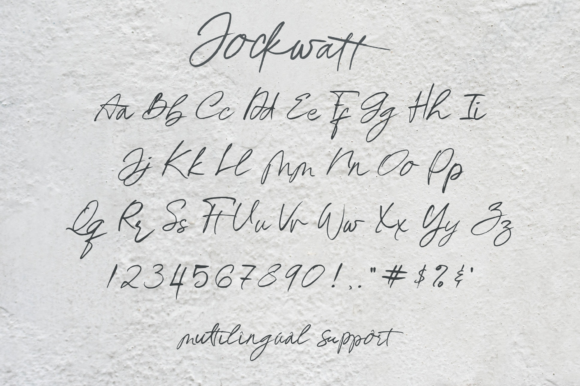 Jockwatt
Aa Bb Cc Dd Ee Ff Gg Hh Ii
Jj Kk Ll Mm Nn Oo Pp
Qq Rr Ss Tt Uu Vv Ww Xx Yy Zz
1234567890!.,"#$%&'
multilingual support